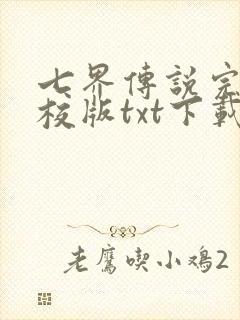 七界傳説完
校版txt下載
老鷹喫小鸡2